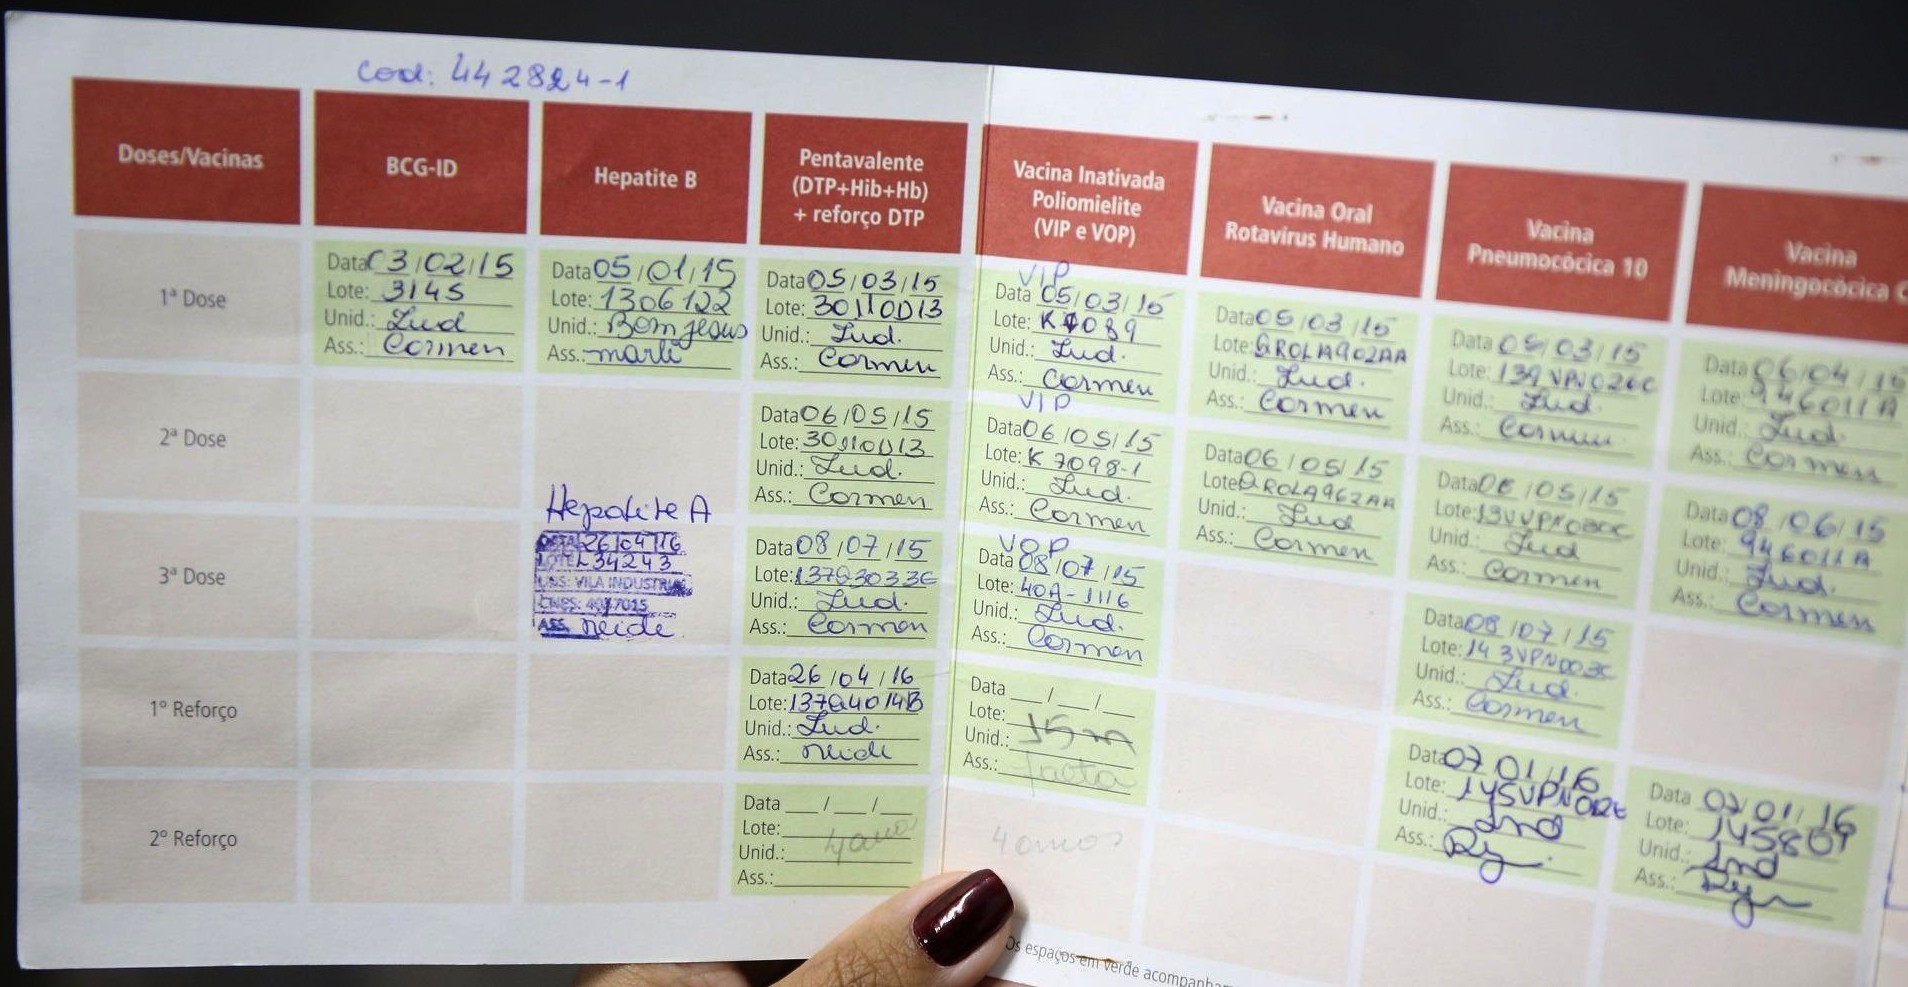 Cod: 442824-1
Doses/Vacinas
BCG-ID
Hepatite B
Pentavalente
(DTP+Hib+Hb)
+ reforço DTP
Vacina Inativada
Poliomielite
(VIP e VOP)
Vacina Oral
Rotavírus Humano
Vacina
Pneumocócica 10
Vacina
Meningocócica C
1ª Dose
Data 03/02/15
Lote: 3145
Unid.: Lud
Ass.: Cormen
Data 05/01/15
Lote: 1306122
Unid.: Bom Jesus
Ass.: marli
Data 05/03/15
Lote: 30110D13
Unid.: Lud.
Ass.: Cormen
VIP
Data 05/03/15
Lote: K7089
Unid.: Lud.
Ass.: Cormen
Data 05/03/15
Lote: AROLA902AA
Unid.: Lud.
Ass.: Cormen
Data 05/03/15
Lote: 139VPN026C
Unid.: Lud.
Ass.: Cormen
Data 06/04/15
Lote: 946011A
Unid.: Lud
Ass.: Cormen
2ª Dose
Data 06/05/15
Lote: 30110D13
Unid.: Lud.
Ass.: Cormen
VIP
Data 06/05/15
Lote: K7098-1
Unid.: Lud.
Ass.: Cormen
Data 06/05/15
Lote AROLA962AA
Unid.: Lud
Ass.: Cormen
Data 06/05/15
Lote:
Unid.: Lud
Ass.: Cormen
Data 08/06/15
Lote: 946011A
Unid.: Lud.
Ass.: Cormen
3ª Dose
Hepatite A
DATA 26/04/16
LOTE L34243
UBS: VILA INDUSTRIAL
CNES: 4047015
ASS. neide
Data 08/07/15
Lote: 137Q3033C
Unid.: Lud.
Ass.: Cormen
VOP
Data 08/07/15
Lote: 40A-1116
Unid.: Lud.
Ass.: Cormen
Data 08/07/15
Lote: 143VPN003C
Unid.: Lud.
Ass.: Cormen
1º Reforço
Data 26/04/16
Lote: 137Q4014B
Unid.: Lud.
Ass.: neide
Data __/__/__
Lote:
Unid.: 15m
Ass.:
Data 07/01/16
Lote:
Unid.: Ind
Ass.:
Data 07/01/16
Lote: 145807
Unid.: Ind
Ass.:
2º Reforço
Data __/__/__
Lote:
4 anos
Unid.:
Ass.:
4 anos
Os espaços em verde acompanham